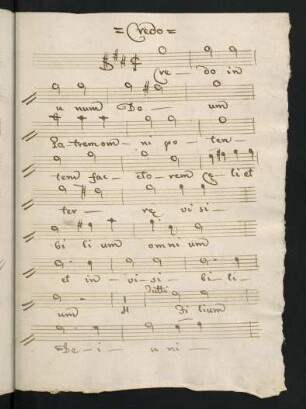 = Credo =
Cre - do in
u num Do - um
Pa - trem om - ni po - ten -
tem fac - cto - rem Cę - li et
ter - rę vi si -
bi li um omni um
et in - vi - si - bi - li -
Tutti
um Fi lium
De - i - u ni -